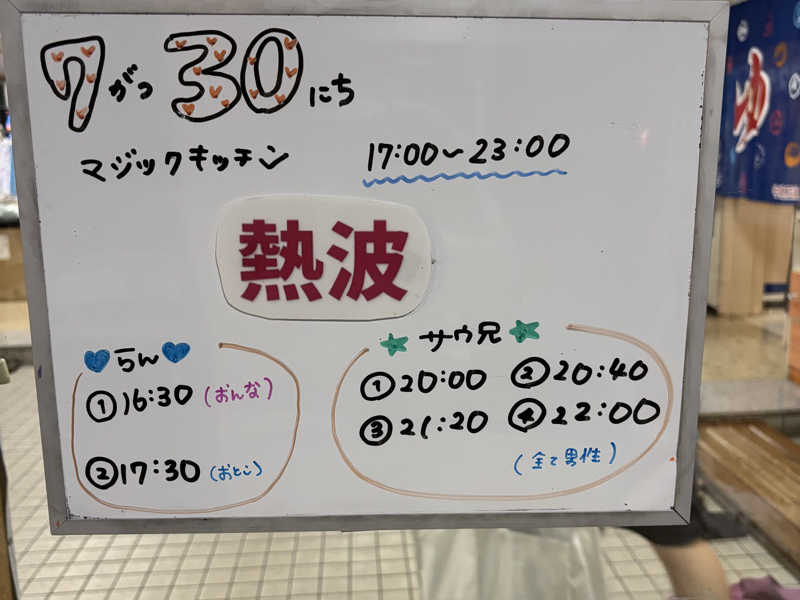 7がつ30にち
マジックキッチン 17:00~23:00
熱波
らん
①16:30(おんな)
②17:30(おとこ)
サウ兄
①20:00 ②20:40
③21:20 ④22:00
(全て男性)
ゆ